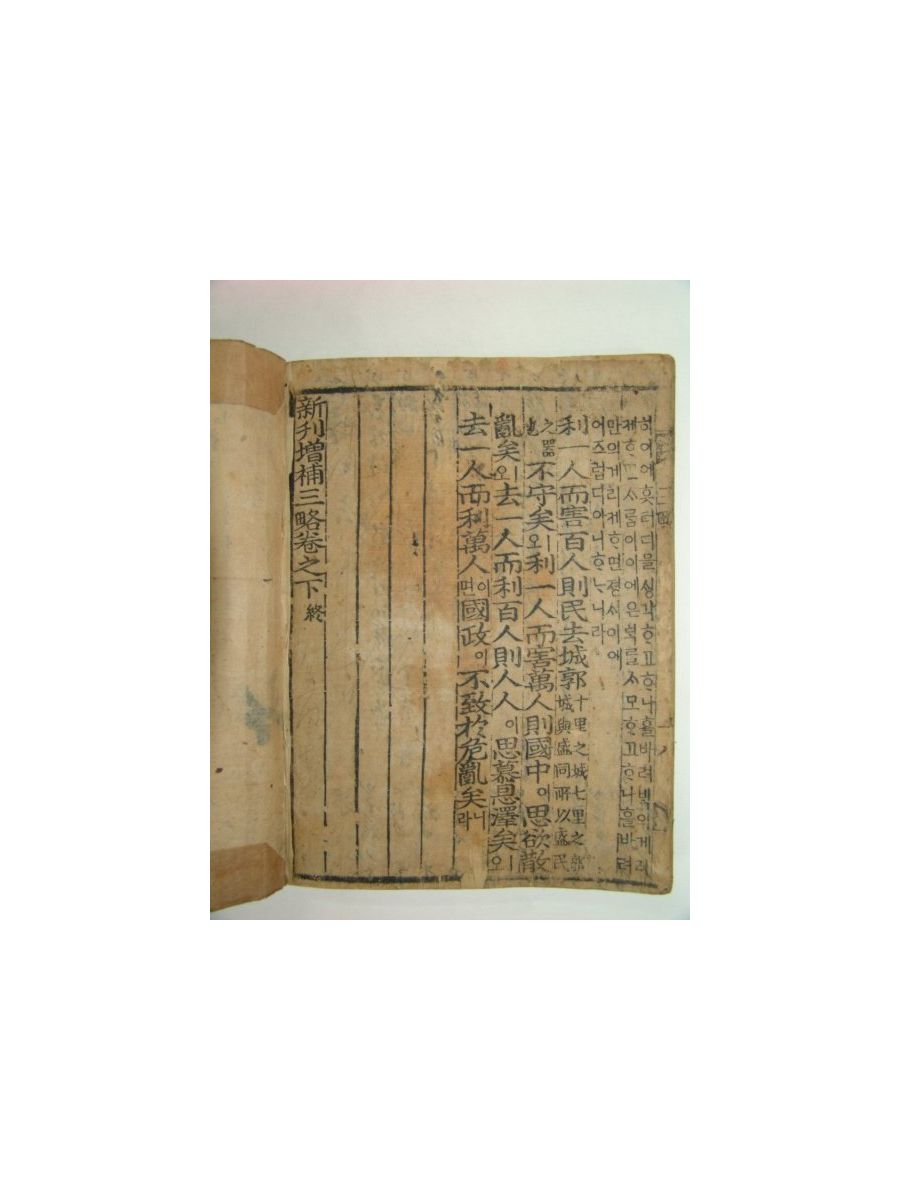 히여에흣터디믈ᄉᆡᆼ각ᄒᆞ고ᄒᆞ나흘바려ᄇᆡᆨ의게리
제ᄒᆞ면사ᄅᆞᆷ이이에은ᄐᆡᆨ를ᄉᆞ모ᄒᆞ고ᄒᆞ나흘바려
만의게리제ᄒᆞ면졍ᄉᆡ이애
어즈럽디아니ᄒᆞᄂᆞ니라
利一人而害百人則民去城郭十里之城七里之郭城與盛同所以盛民
之器也不守矣오利一人而害萬人則國中이思欲散
亂矣오去一人而利百人則人人이思慕恩澤矣오
去一人而利萬人이면國政이不致於危亂矣니라
新刊增補三略卷之下 終